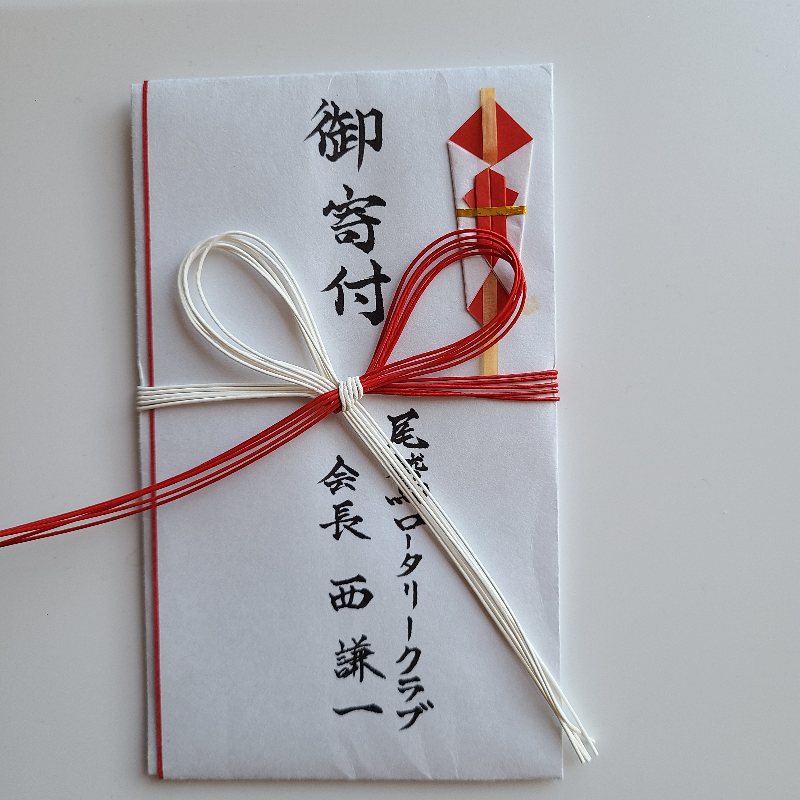 御寄付
尾鷲ロータリークラブ
会長 西 謙一